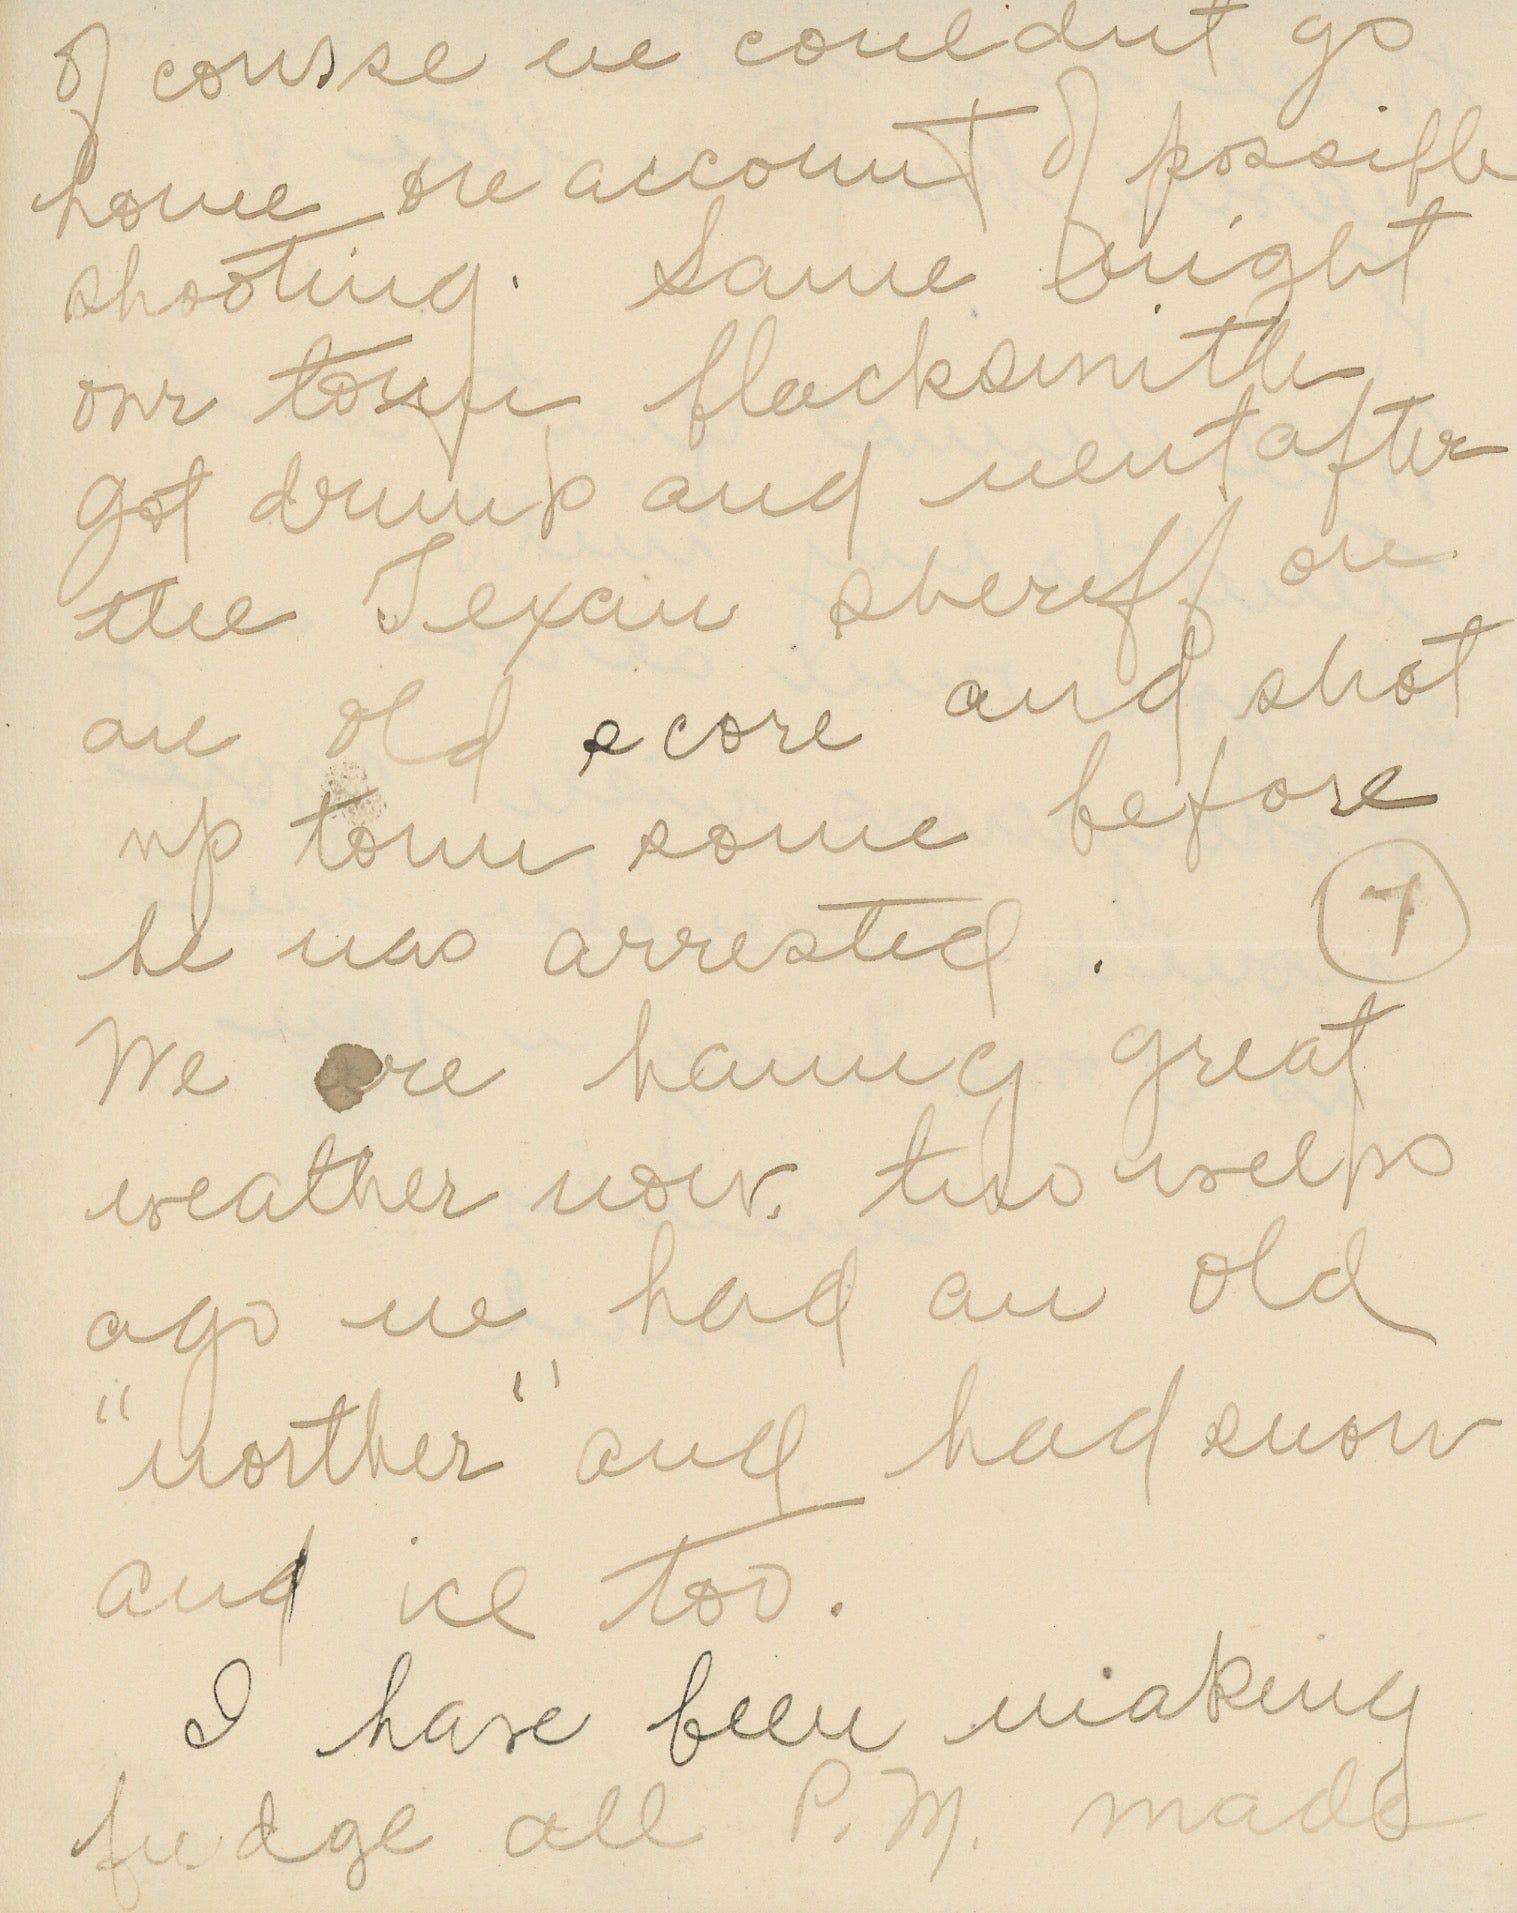 of course we couldnt go
home on account of possible
shooting. Same night
our town blacksmith
got drunk and went after
the Texan sheriff on
an old score and shot
up town some before
he was arrested. 7
We are having great
weather now. two weeks
ago we had an old
"norther" and had snow
and ice too.
I have been making
fudge all P.M. made